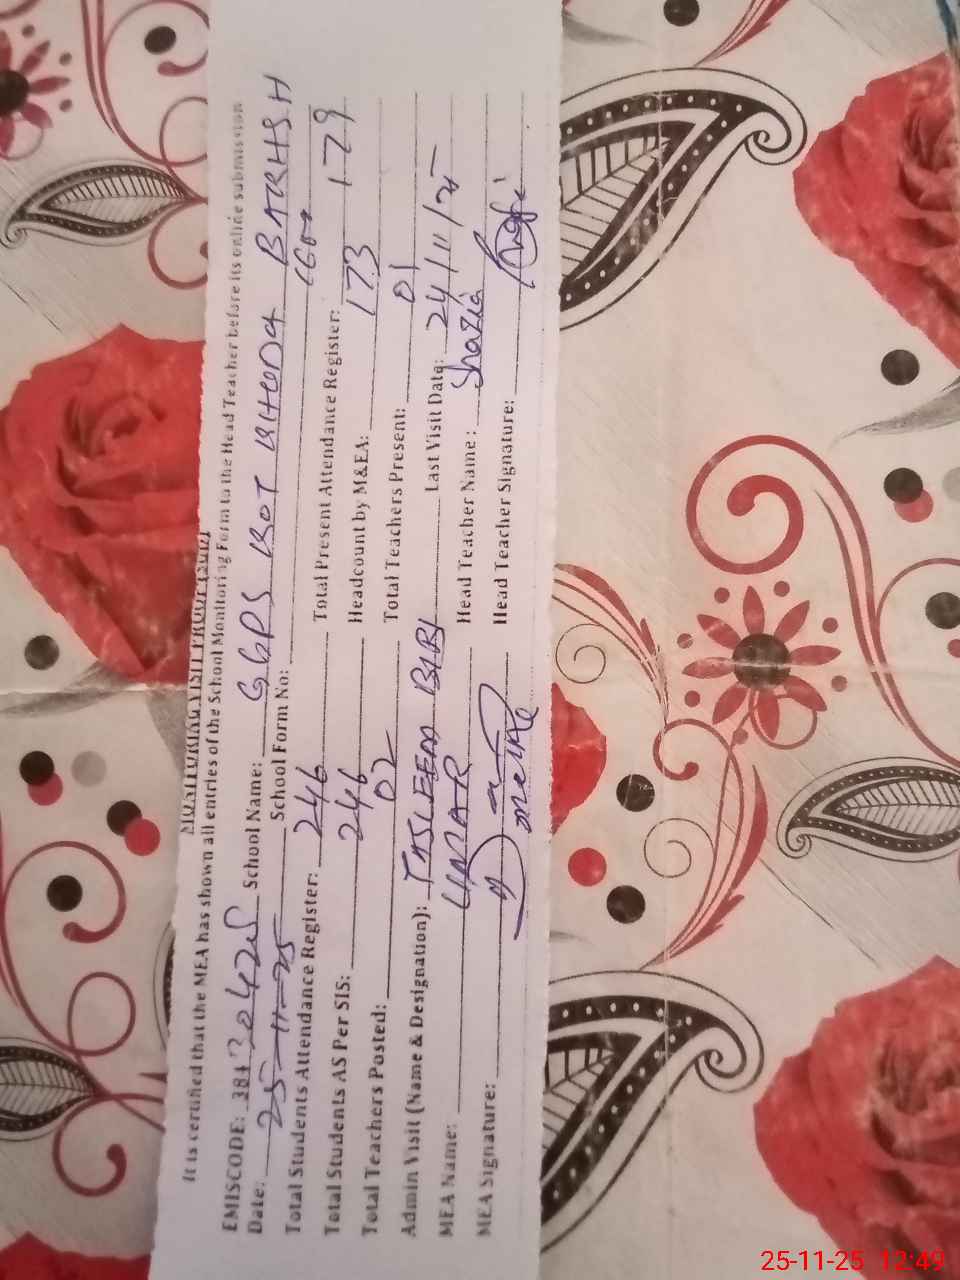 MONITORING VISIT PROOF
It is certified that the MEA has shown all entries of the School Monitoring Form to the Head Teacher before its online submission
EMISCODE: 384 20425 School Name: GGPS KOT KHUDA BAKHSH
Date: 25-11-25 School Form No:
Total Students Attendance Register: 246 Total Present Attendance Register: 179
Total Students AS Per SIS: 246 Headcount by M&EA: 173
Total Teachers Posted: 02 Total Teachers Present: 01
Admin Visit (Name & Designation): TASLEEM BIBI Last Visit Date: 24/11/25
MEA Name: UMAR Head Teacher Name: Shazia
MEA Signature: Head Teacher Signature:
25-11-25 12:49